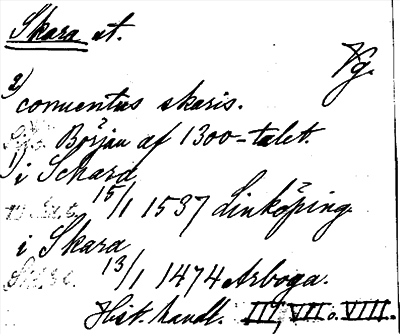 Skara st.
Vg.
2) conuentus skaris.
Början af 1300-talet.
1) i Schara
15/1 1537 Linköping.
i Skara
13/1 1474 Arboga.
Hist. handl. III, VII o. VIII.